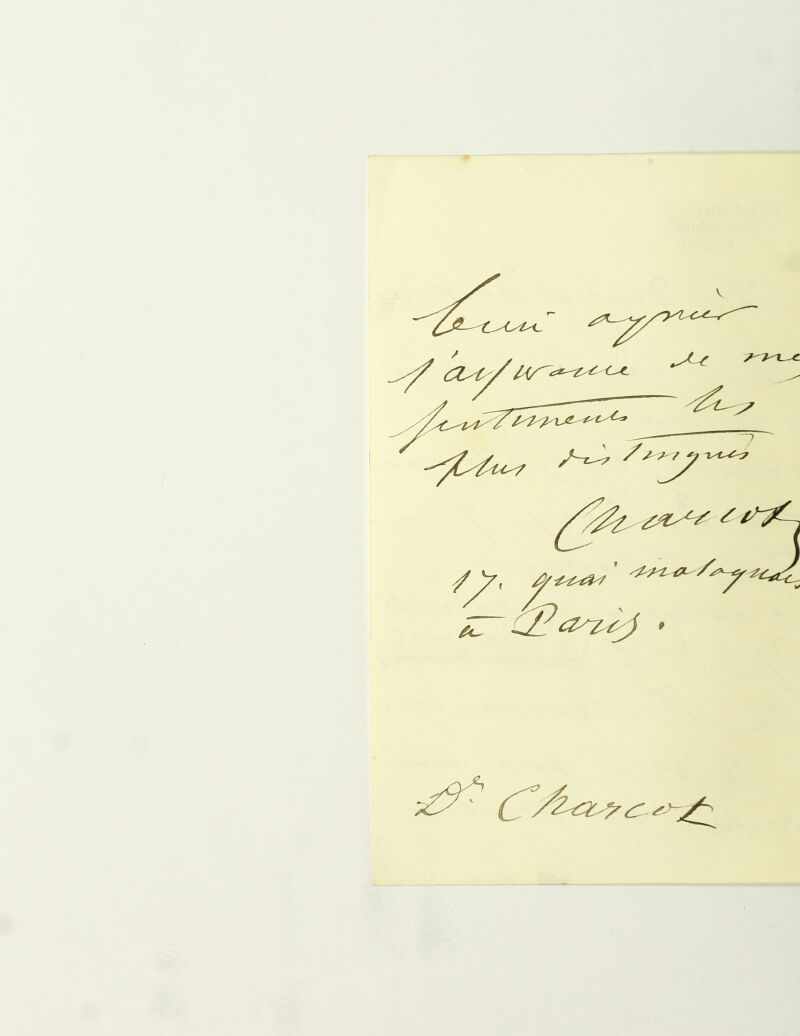 l'assurance de mes
sentiments les
plus distingués
Charcot
17. quai malaquais
à Paris.
Dr. Charcot